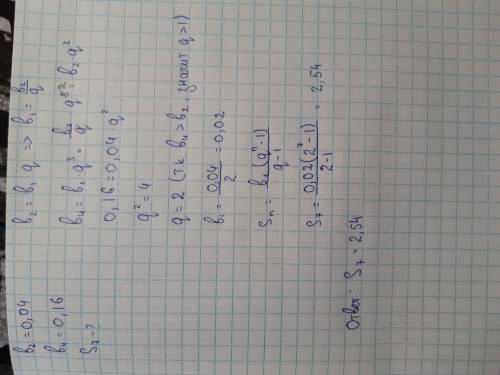 b₂ = 0,04
b₄ = 0,16
S₇ - ?
b₂ = b₁ q => b₁ = b₂/q
b₄ = b₁ q³ = b₂/q q³ = b₂ q²
0,16 = 0,04 q²
q² = 4
q = 2 (т.к b₄ > b₂, значит q > 1)
b₁ = 0,04/2 = 0,02
Sₙ = b₁(qⁿ-1)/q-1
S₇ = 0,02(2⁷-1)/2-1 = 2,54
Ответ: S₇ = 2,54